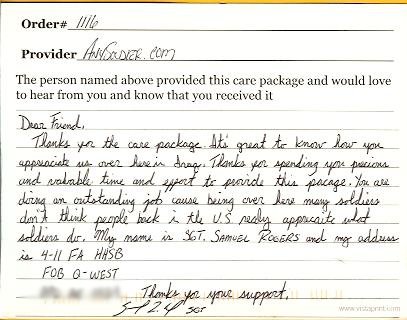 Order# 1116
Provider AnySoldier.com
The person named above provided this care package and would love
to hear from you and know that you received it
Dear Friend,
Thanks for the care package. It's great to know how you
appreciate us over here in Iraq. Thanks for spending you precious
and valuable time and effort to provide this pacage. You are
doing an outstanding job cause being over here many soldiers
don't think people back in the U.S really appreciate what
soldiers do. My name is SGT. Samuel Rogers and my address
is 4-11 FA HHSB
FOB Q-WEST
Thanks for your support,
SGT
www.vistaprint.com